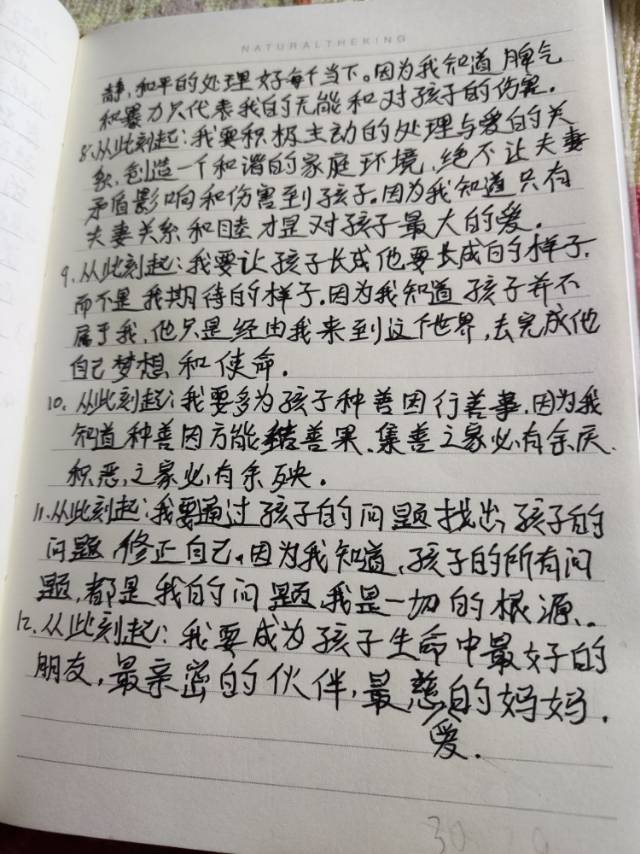 NATURALTHEKING
静,和平的处理好每个当下。因为我知道脾气
和暴力只代表我的无能和对孩子的伤害。
8.从此刻起:我要积极主动的处理与爱的关
系,创造一个和谐的家庭环境,绝不让夫妻
矛盾影响和伤害到孩子。因为我知道只有
夫妻关系和睦才是对孩子最大的爱。
9.从此刻起:我要让孩子长成他要长成的样子,
而不是我期待的样子。因为我知道孩子并不
属于我,他只是经由我来到这个世界,去完成他
自己梦想和使命。
10.从此刻起:我要多为孩子种善因行善事,因为我
知道种善因方能结善果,集善之家必有余庆,
积恶之家必有余殃。
11.从此刻起:我要通过孩子的问题找出孩子的
问题,修正自己。因为我知道,孩子的所有问
题,都是我的问题,我是一切的根源。
12.从此刻起:我要成为孩子生命中最好的
朋友,最亲密的伙伴,最慈爱的妈妈。
30